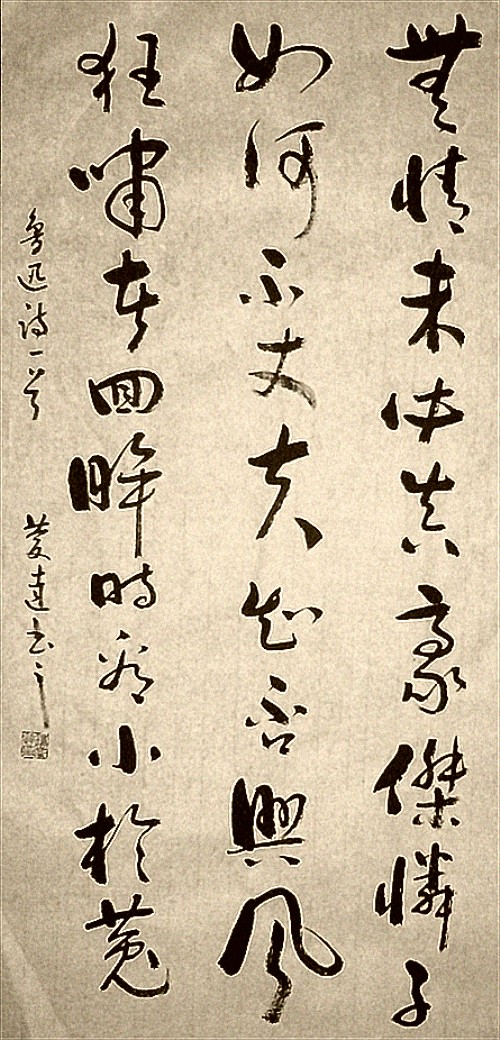 無情未必真豪傑憐子
如何不丈夫知否興風
狂嘯者回眸時看小於菟
魯迅詩一首 達書